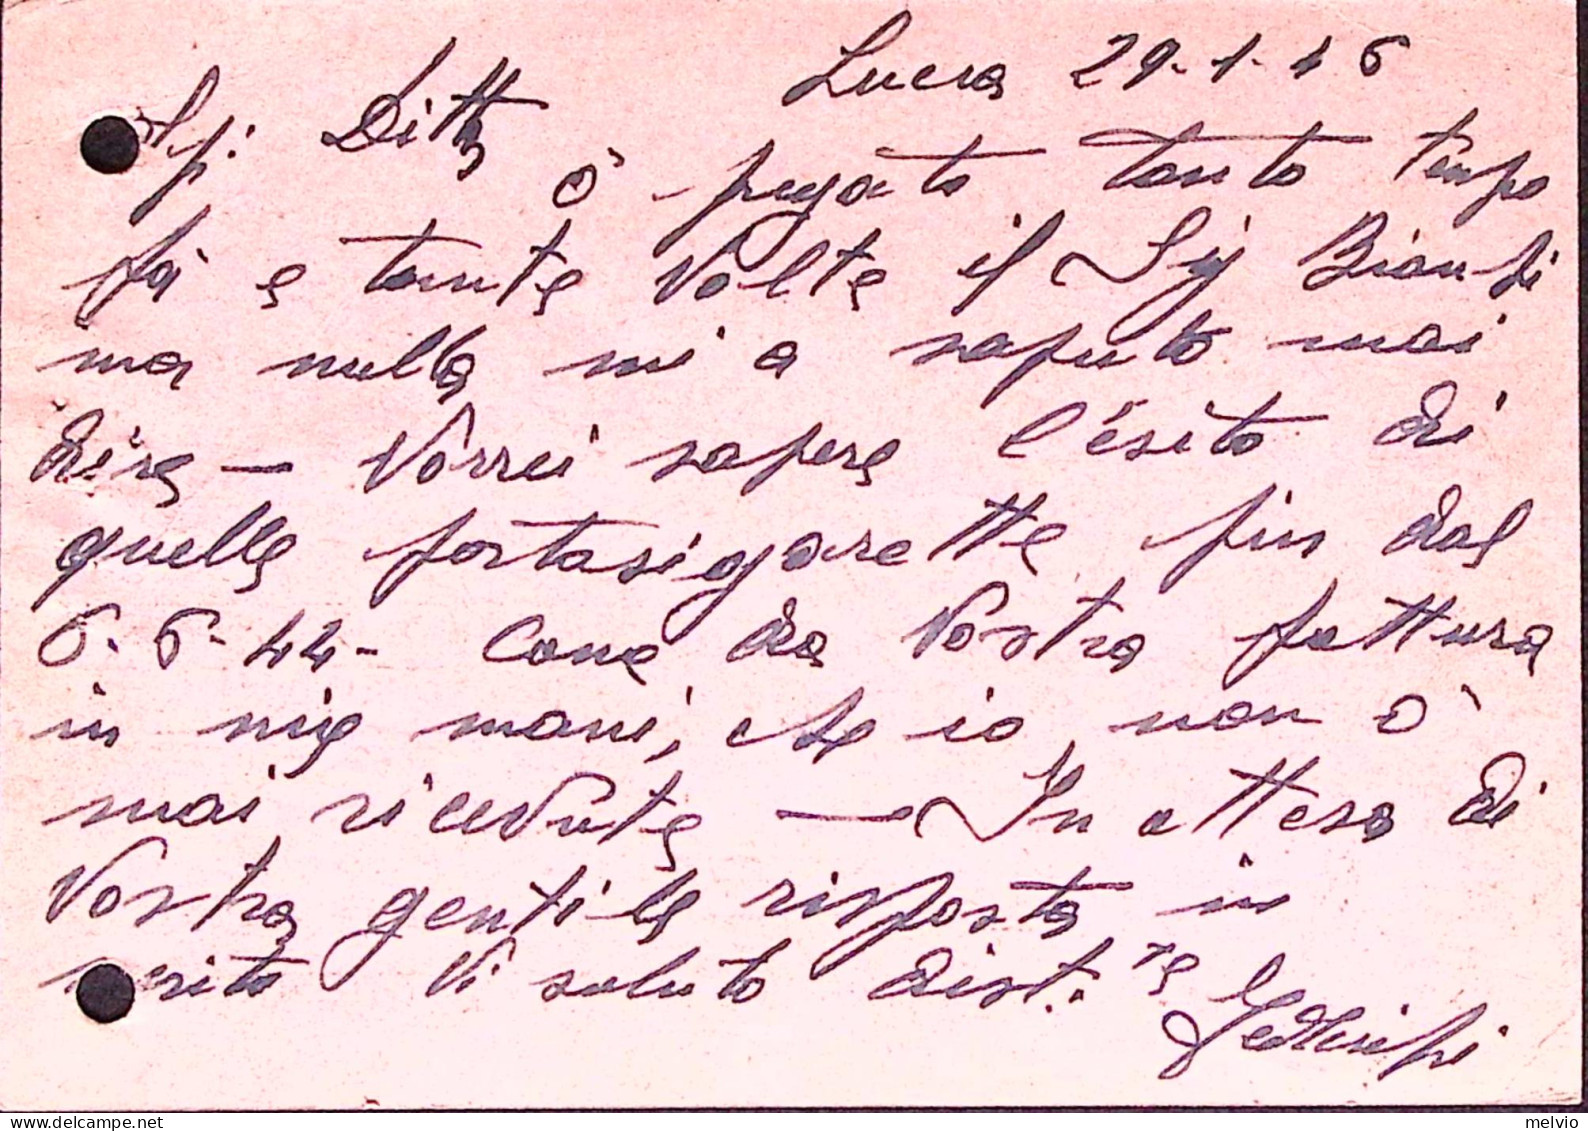 Lucca 29.1.46
Sp. Ditta
ò pregato tanto tempo
fà e tante volte il Sig Bianchi
ma nulla mi a saputo mai
dire — Vorrei sapere l'ésito di
quelle portasigarette fin dal
6.6.44 - Come da Vostra fattura
in mie mani, che io, non ò
mai ricevute — In attesa di
Vostra gentile risposta in
merito Vi saluto dist.te
melvio